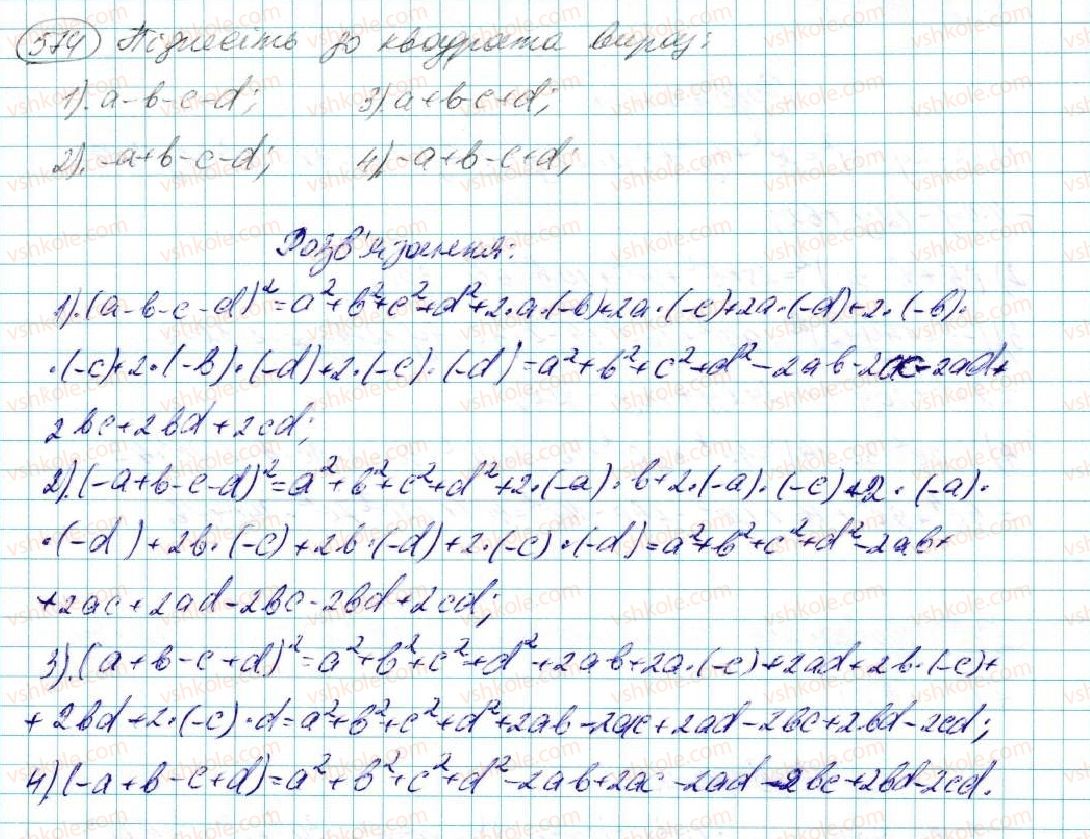 574 Піднесіть до квадрата вираз:
1). a-b-c-d; 3) a+b-c+d;
2). -a+b-c-d; 4) -a+b-c+d;
Розв'язання:
1). (a-b-c-d)²=a²+b²+c²+d²+2·a·(-b)+2a·(-c)+2a·(-d)+2·(-b)·
·(-c)+2·(-b)·(-d)+2·(-c)·(-d)=a²+b²+c²+d²-2ab-2ac-2ad+
2bc+2bd+2cd;
2). (-a+b-c-d)²=a²+b²+c²+d²+2·(-a)·b+2·(-a)·(-c)+2·(-a)·
·(-d)+2b·(-c)+2b·(-d)+2·(-c)·(-d)=a²+b²+c²+d²-2ab+
+2ac+2ad-2bc-2bd+2cd;
3). (a+b-c+d)²=a²+b²+c²+d²+2ab+2a·(-c)+2ad+2b·(-c)+
+2bd+2·(-c)·d=a²+b²+c²+d²+2ab-2ac+2ad-2bc+2bd-2cd;
4) (-a+b-c+d)=a²+b²+c²+d²-2ab+2ac-2ad-2bc+2bd-2cd.